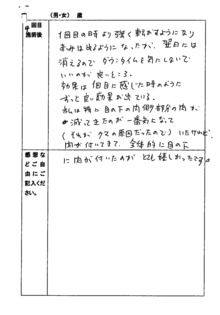 (男・女) 歳
回目
施術後
1回目の時より強く転がすようになり
赤みは出るようになったが、翌日には
消えるのでダウンタイムを気にしないで
いいのが良いところ。
効果は1回目に感じた時のように
ずっと良い効果が出ている。
私は特に目の下の内側部分の肉が
減ってきたのが一番気になって
(それがクマの原因だったので)いたけど、
肉が付いてきて、全体的に目の下
に肉が付いたのがとても嬉しかったです。
感想
などご自由にご記入ください。